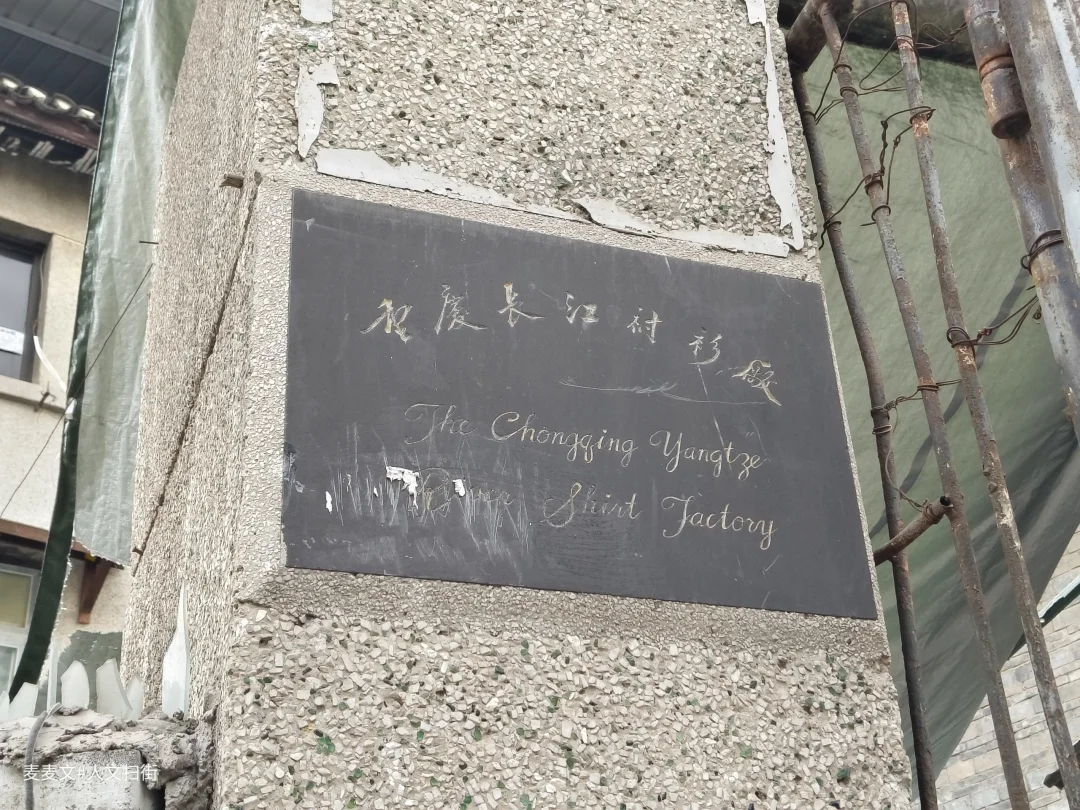 重慶長江衬衫厰
The Chongqing Yangtze
River Shirt Factory
麦麦文#人文扫街